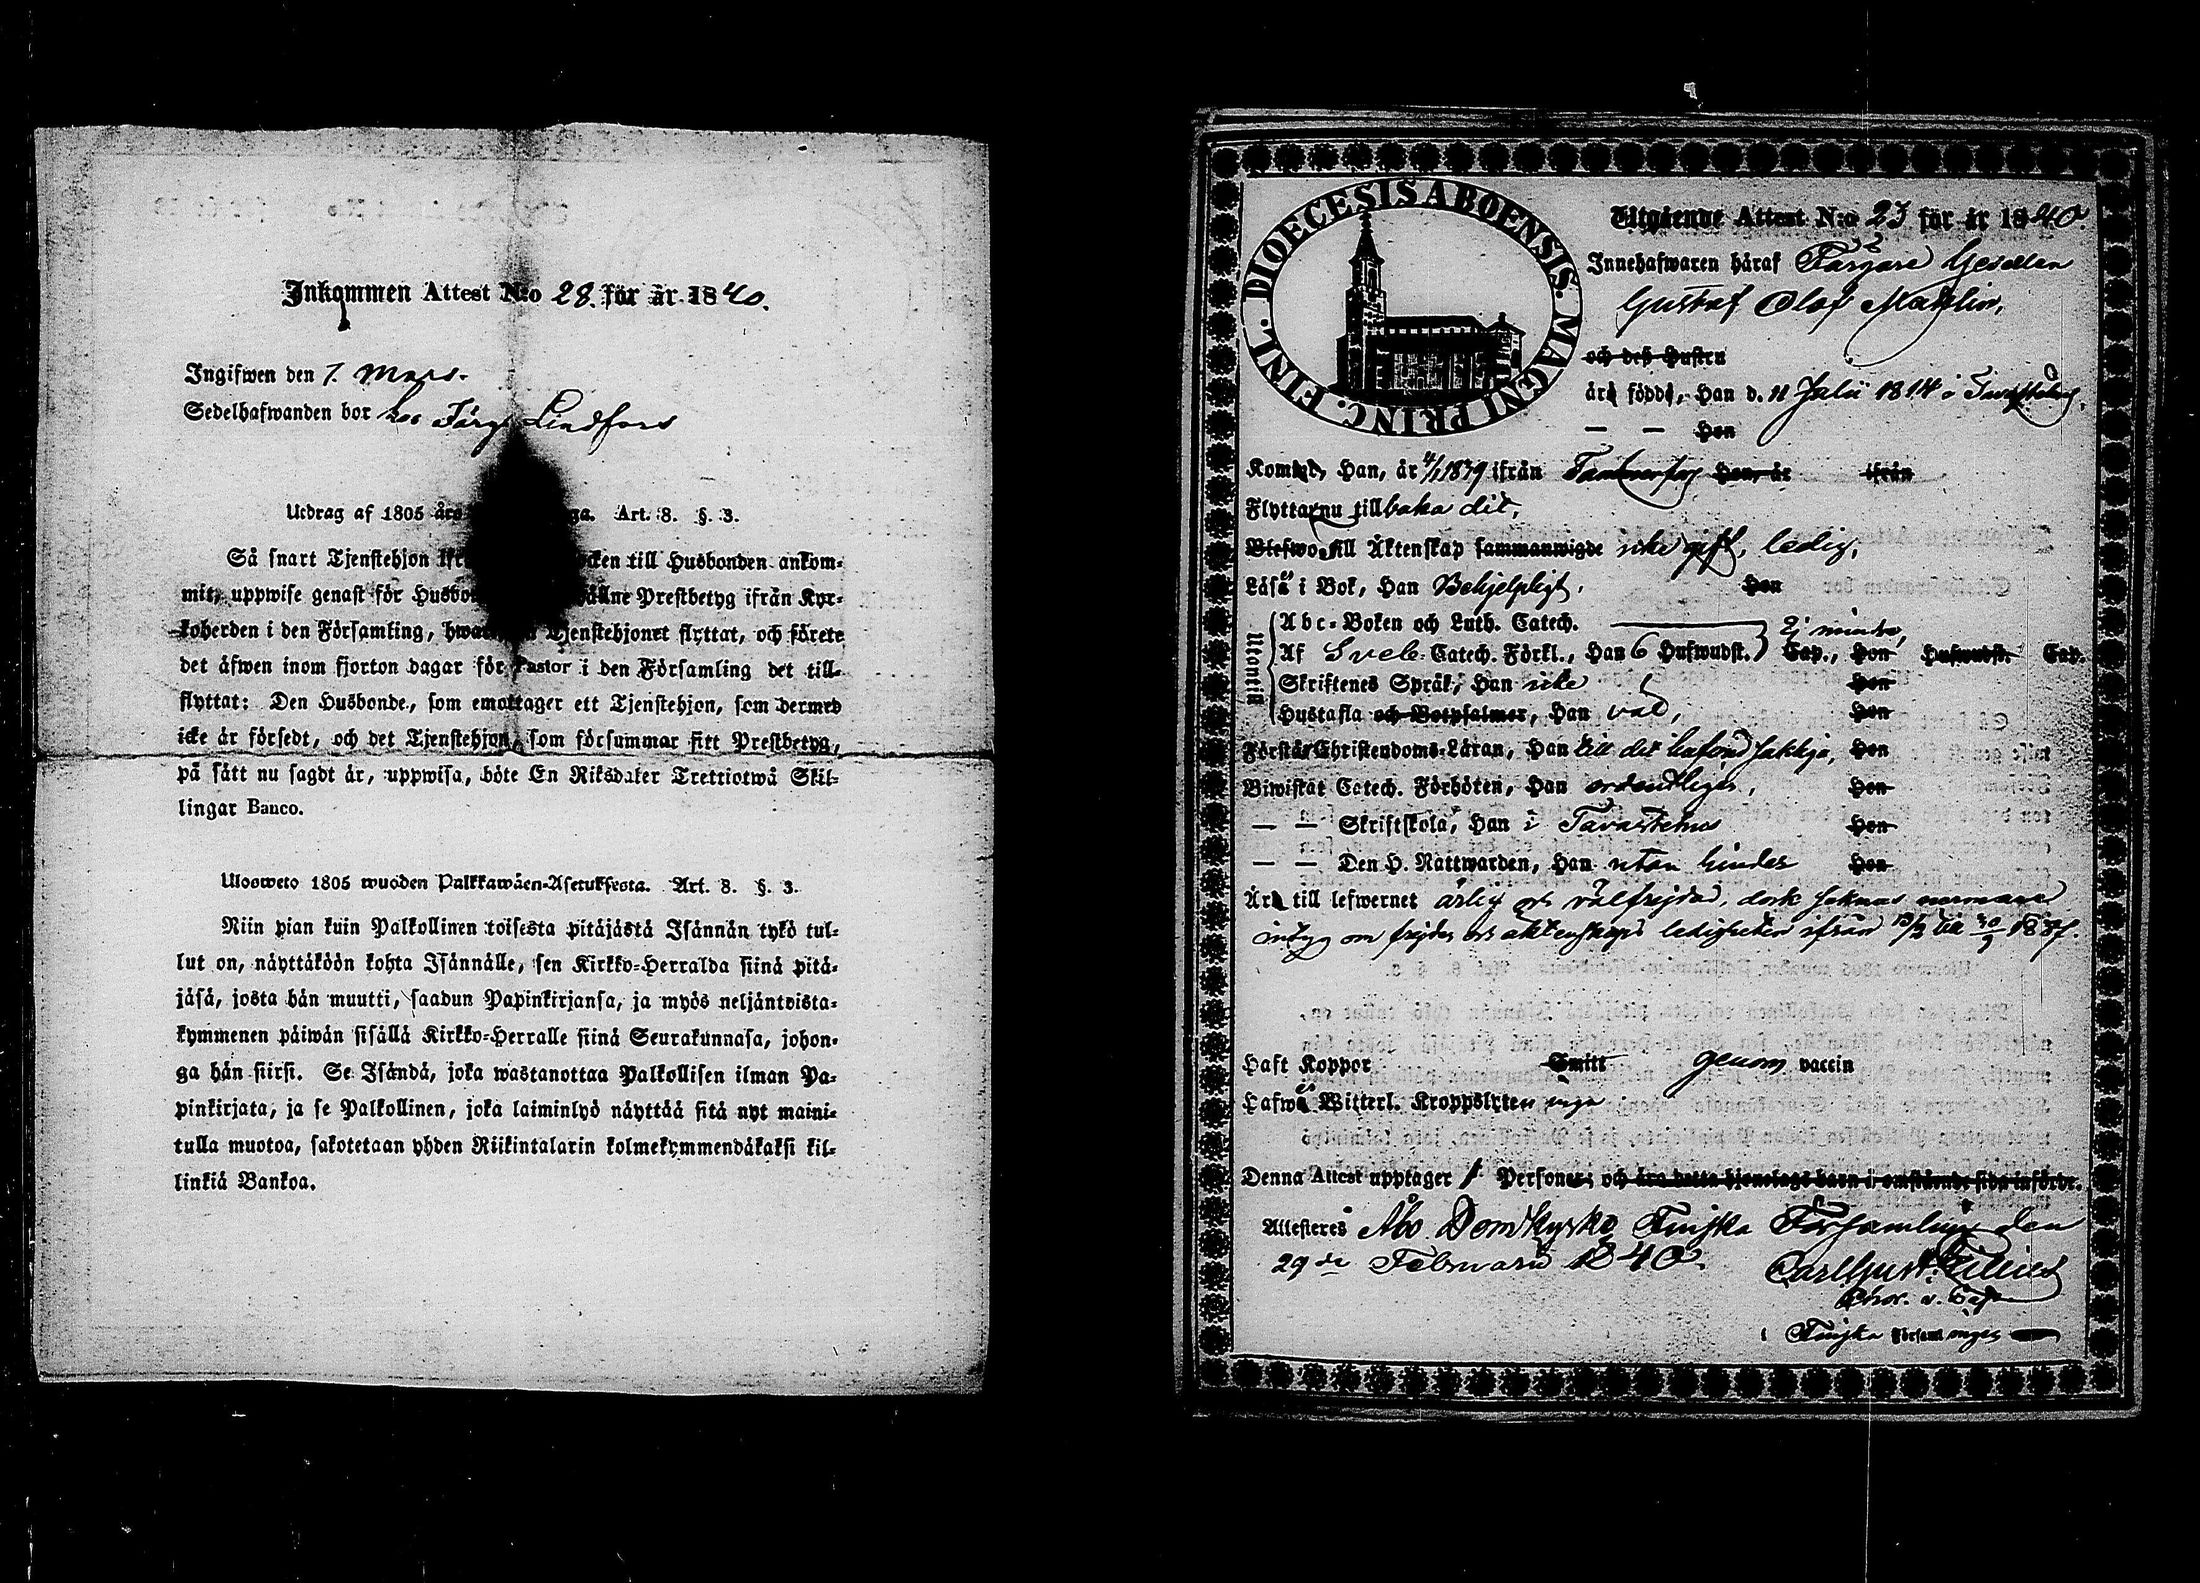 Inkommen Attest N:o 28. för år 1840.
Ingifwen den 7. Mars.
Sedelhafwanden bor hos Färg. Lindfors
Utdrag af 1805 års ga. Art. 8. §. 3.
Så snart Tjenstehjon ifrå cken till Husbonden ankom-
mit, uppwise genast för Husbon ållne Prestbetyg ifrån Kyr-
koherden i den Församling, hwar Tjenstehjonet flyttat, och förete
det äfwen inom fjorton dagar för Pastor i den Församling det till-
flyttat: Den Husbonde, som emottager ett Tjenstehjon, som dermed
icke är försedt, och det Tjenstehjon, som försummar sitt Prestbetyg,
på sätt nu sagdt är, uppwisa, böte En Riksdaler Trettiotwå Skil-
lingar Banco.
Ulosweto 1805 wuoden Palkkawäen-Asetuksesta. Art. 8. §. 3.
Niin pian kuin Palkollinen toisesta pitäjästä Isännän tykö tul-
lut on, näyttäköön kohta Isännälle, sen Kirkko-Herralda siinä pitä-
jäsä, josta hän muutti, saadun Papinkirjansa, ja myös neljäntoista-
kymmenen päiwän sisällä Kirkko-Herralle siinä Seurakunnasa, johon-
ga hän siirsi. Se Isändä, joka wastanottaa Palkollisen ilman Pa-
pinkirjata, ja se Palkollinen, joka laiminlyö näyttää sitä nyt maini-
tulla muotoa, sakotetaan yhden Riikintalarin kolmekymmendäkaksi kil-
linkiä Bankoa.
DIOECESIS ABOENSIS. MAGNI PRINC. FINL.
Utgående Attest N:o 23 för år 1840.
Innehafwaren häraf Färgare Gesellen
Gustaf Olof Mahlin,
och des Hustru
ärs födds, Han d. 11 Julii 1814 i Tavastehus,
— — Hon
Komne, Han, år 4/1 1839 ifrån Tammerfors Hon, år ifrån
Flyttar nu tillbaka dit,
Blefwo till Äktenskap sammanwigde icke gift, ledig,
Läsa i Bok, Han Behjelpligt, Hon
Utantill
Abc-Boken och Luth. Catech.
Af Sveb. Catech. Förkl., Han 6 Hufwudst. Cap., Hon Hufwudst. Cap.
Ej mindre,
Skriftenes Språk, Han icke Hon
Hustafla och Botpsalmer, Han väl, Hon
Förstår Christendoms-Läran, Han till det behof Hon
Biwistat Catech. Förhören, Han ordentligen, Hon
— — Skriftskola, Han i Tavastehus Hon
— — Den H. Nattwarden, Han utan hinder Hon
Är till lefwernet ärlig och välfrejdad, dock saknas närmare
intyg om frejden och äktenskaps ledigheten ifrån 12/2 till 30/9 1837.
Haft Koppor Smitt genom vaccin
Hafwa Witterl. Kroppslyten inga
Denna Attest upptager 1 Personer; och äro detta hjonelags barn i omstående sida införde.
Attesteres Åbo Domkyrko Finska Församling den
29de Februarii 1840.
Carl Gust.
i Finska Församlingen